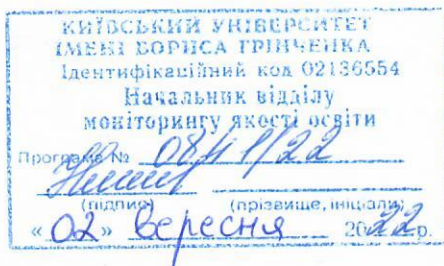 КИЇВСЬКИЙ УНІВЕРСИТЕТ
ІМЕНІ БОРИСА ГРІНЧЕНКА
Ідентифікаційний код 02136554
Начальник відділу
моніторингу якості освіти
Програма №
(підпис) (прізвище, ініціали)
« 02 » вересня 2022р.